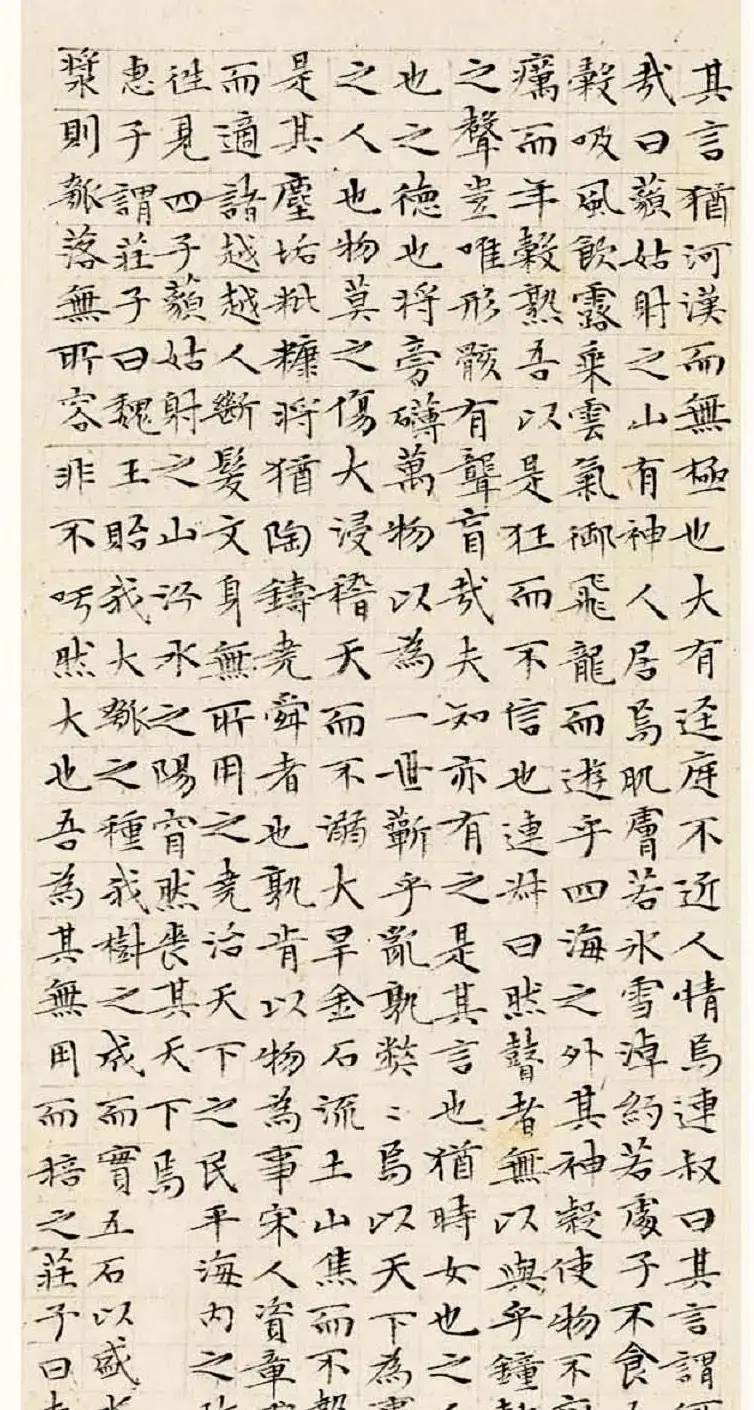 其言猶河漢而無極也大有逕庭不近人情焉連叔曰其言謂
哉曰藐姑射之山有神人居焉肌膚若氷雪淖約若處子不食
穀吸風飲露乗雲氣御飛龍而遊乎四海之外其神凝使物不
癘而年穀熟吾以是狂而不信也連叔曰然瞽者無以與乎鐘
之聲豈唯形骸有聾盲哉夫知亦有之是其言也猶時女也之
也之徳也将旁礴萬物以為一世蘄乎亂孰弊〻焉以天下為
之人也物莫之傷大浸稽天而不溺大旱金石流土山焦而不
是其塵垢粃糠将猶陶鑄堯舜者也孰肯以物為事宋人資章
而適諸越越人断髮文身無所用之堯治天下之民平海内之
往見四子藐姑射之山汾水之陽窅然喪其天下焉
惠子謂莊子曰魏王貽我大瓠之種我樹之成而實五石以盛
漿則瓠落無所容非不呺然大也吾為其無用而掊之莊子曰